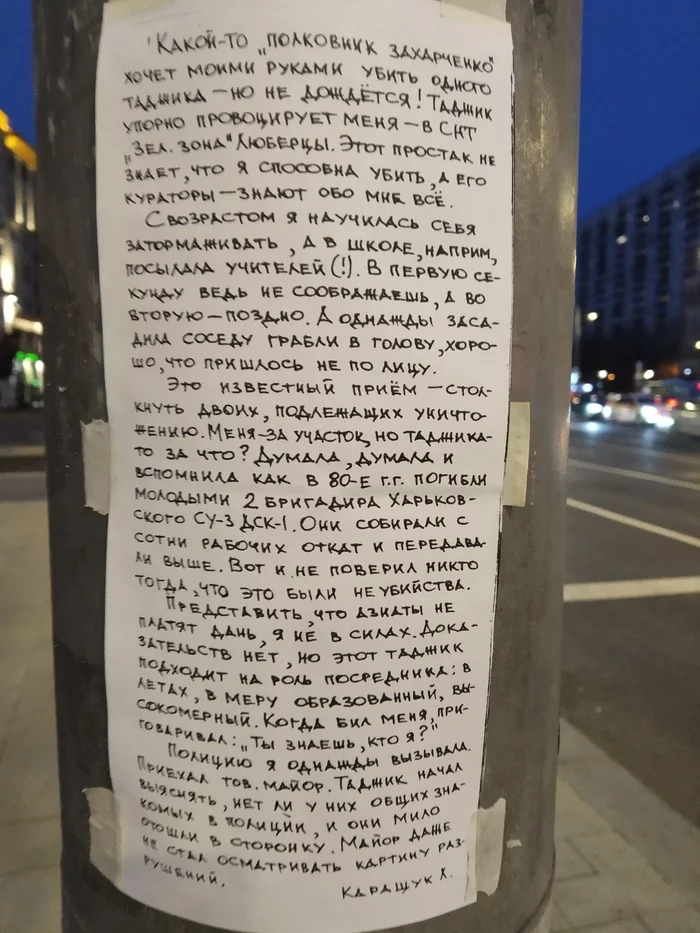 Какой-то „полковник Захарченко"
хочет моими руками убить одного
таджика – но не дождётся! Таджик
упорно провоцирует меня – в СНТ
„Зел. зона" Люберцы. Этот простак не
знает, что я способна убить, а его
кураторы – знают обо мне всё.
С возрастом я научилась себя
затормаживать, а в школе, наприм,
посылала учителей (!). В первую се-
кунду ведь не соображаешь, а во
вторую – поздно. А однажды заса-
дила соседу грабли в голову, хоро-
шо, что пришлось не по лицу.
Это известный приём – стол-
кнуть двоих, подлежащих уничто-
жению. Меня – за участок, но таджика-
то за что? Думала, думала и
вспомнила как в 80-е г.г. погибли
молодыми 2 бригадира Харьков-
ского СУ-3 ДСК-1. Они собирали с
сотни рабочих откат и передава-
ли выше. Вот и не поверил никто
тогда, что это были не убийства.
Представить, что азиаты не
платят дань, я не в силах. Дока-
зательств нет, но этот таджик
подходит на роль посредника: в
летах, в меру образованный, вы-
сокомерный. Когда бил меня, при-
говаривал: „Ты знаешь, кто я?"
Полицию я однажды вызывала.
Приехал тов. майор. Таджик начал
выяснять, нет ли у них общих зна-
комых в полиции, и они мило
отошли в сторонку. Майор даже
не стал осматривать картину раз-
рушений.
Каращук Л.